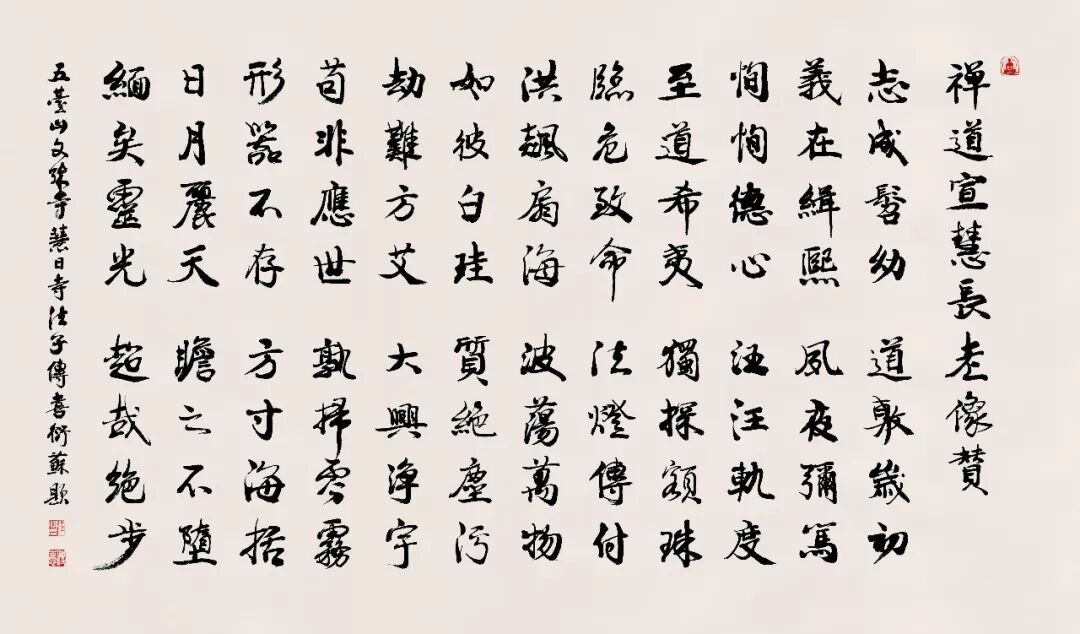 禪道宣慧長老像贊
志成髫幼 道敷歲初
義在緝熙 夙夜彌篤
恂恂德心 汪汪軌度
至道希夷 獨探額珠
臨危致命 法燈傳付
洪飆扇海 波蕩萬物
如彼白珪 質絕塵污
劫難方艾 大興淨宇
苟非應世 孰掃雰霧
形器不存 方寸海括
日月麗天 瞻之不墮
緬矣靈光 超哉絕步
五臺山文殊寺慧日寺法子傳喜衍蘇題